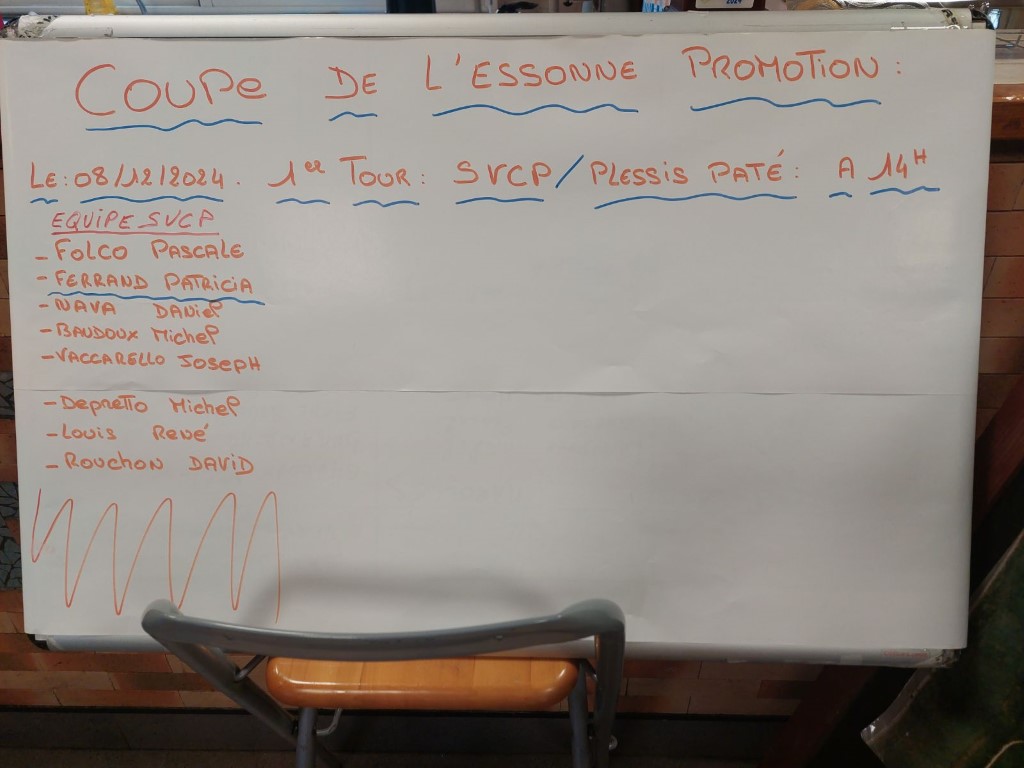 COUPE DE L'ESSONNE PROMOTION :
LE : 08/12/2024. 1er TOUR : SVCP / PLESSIS PATÉ : A 14H
EQUIPE SVCP
- FOLCO PASCALE
- FERRAND PATRICIA
- NAVA DANiel
- BAUDOUX Michel
- VACCARELLO JOSEPH
- Depretto Michel
- Louis René
- ROUCHON DAVID